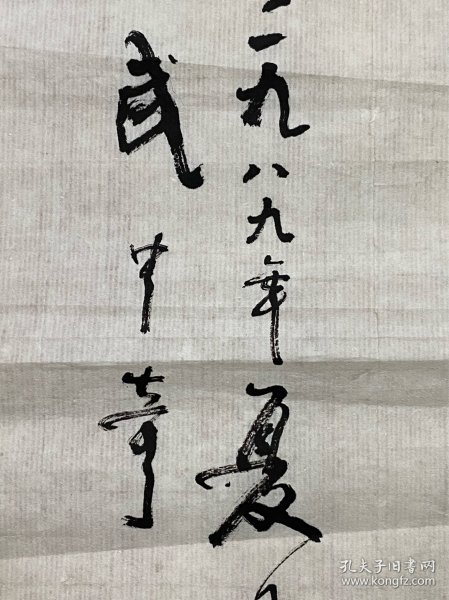 一九八九年夏
武中奇
孔夫子旧书网
www.kongfz.com